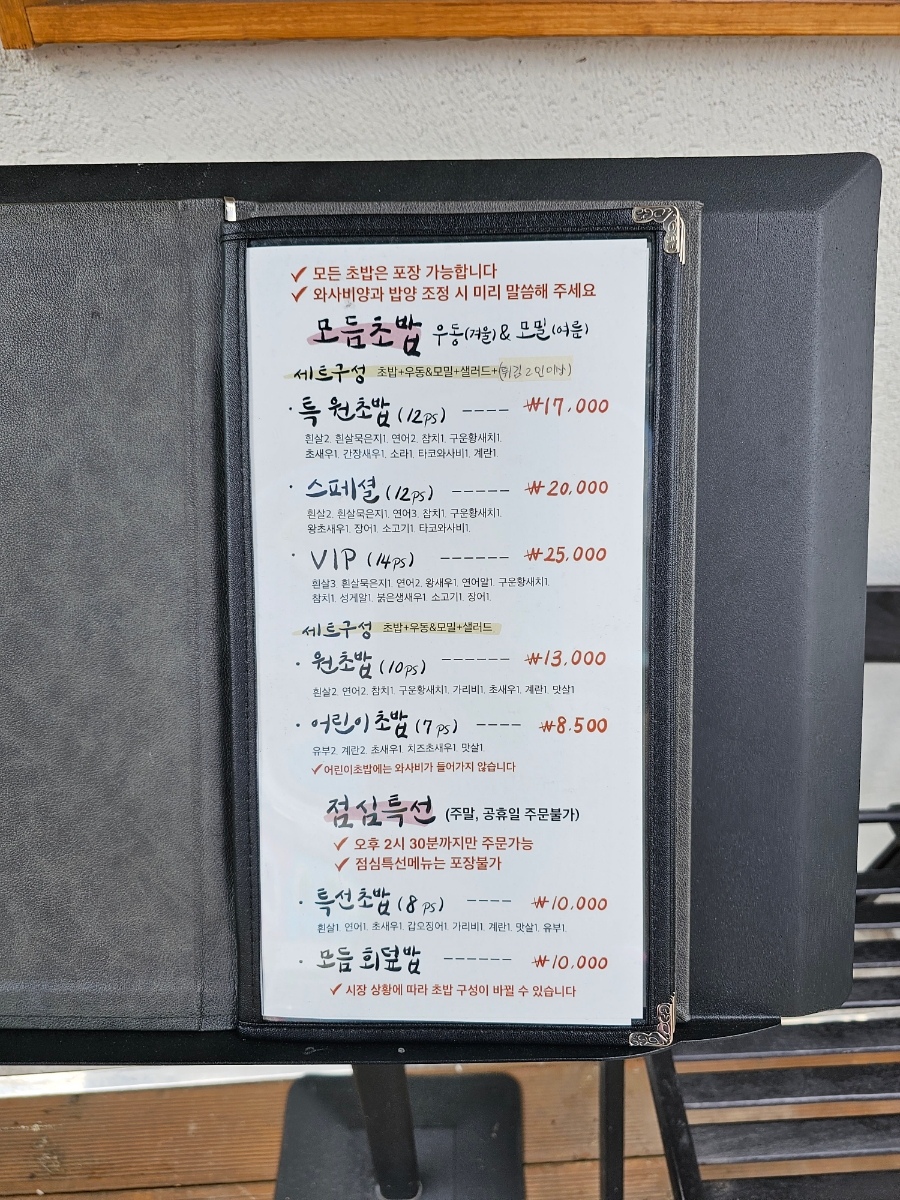 ✓ 모든 초밥은 포장 가능합니다
✓ 와사비양과 밥양 조정 시 미리 말씀해 주세요
모듬초밥 우동(겨울) & 모밀(여름)
세트구성 초밥+우동&모밀+샐러드+(튀김 2인이상)
· 특 원초밥 (12ps) ---- ₩17,000
흰살2. 흰살묵은지1. 연어2. 참치1. 구운황새치1.
초새우1. 간장새우1. 소라1. 타코와사비1. 계란1.
· 스페셜 (12ps) ----- ₩20,000
흰살2. 흰살묵은지1. 연어3. 참치1. 구운황새치1.
왕초새우1. 장어1. 소고기1. 타코와사비1.
· VIP (14ps) ------ ₩25,000
흰살3 흰살묵은지1. 연어2. 왕새우1. 연어알1. 구운황새치1.
참치1. 성게알1. 붉은생새우1 소고기1. 장어1.
세트구성 초밥+우동&모밀+샐러드
· 원초밥 (10ps) ------ ₩13,000
흰살2. 연어2. 참치1. 구운황새치1. 가리비1. 초새우1. 계란1. 맛살1
· 어린이초밥 (7ps) ---- ₩8,500
유부2. 계란2. 초새우1. 치즈초새우1. 맛살1.
✓어린이초밥에는 와사비가 들어가지 않습니다
점심특선 (주말, 공휴일 주문불가)
✓ 오후 2시 30분까지만 주문가능
✓ 점심특선메뉴는 포장불가
· 특선초밥 (8ps) ---- ₩10,000
흰살1. 연어1. 초새우1. 갑오징어1. 가리비1. 계란1. 맛살1. 유부1.
· 모듬 회덮밥 ------ ₩10,000
✓ 시장 상황에 따라 초밥 구성이 바뀔 수 있습니다